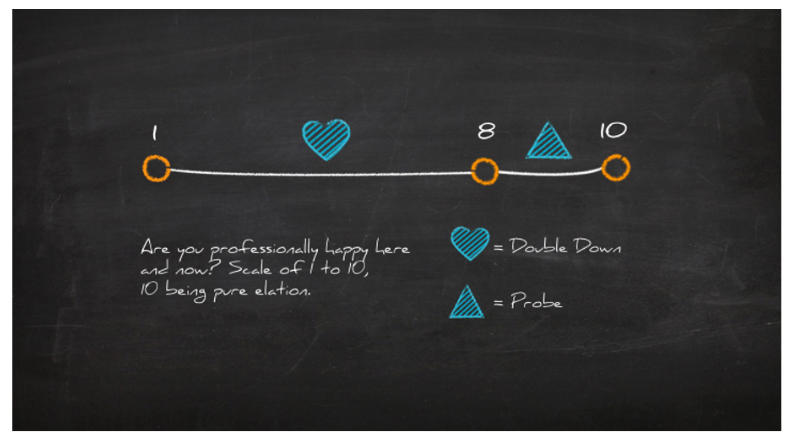 1
8
10
Are you professionally happy here
and now? Scale of 1 to 10,
10 being pure elation.
= Double Down
= Probe